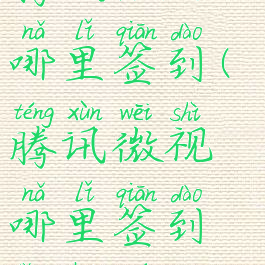 nǎ lǐ qiān dào
哪里签到(
téng xùn wēi shì
腾讯微视
nǎ lǐ qiān dào
哪里签到